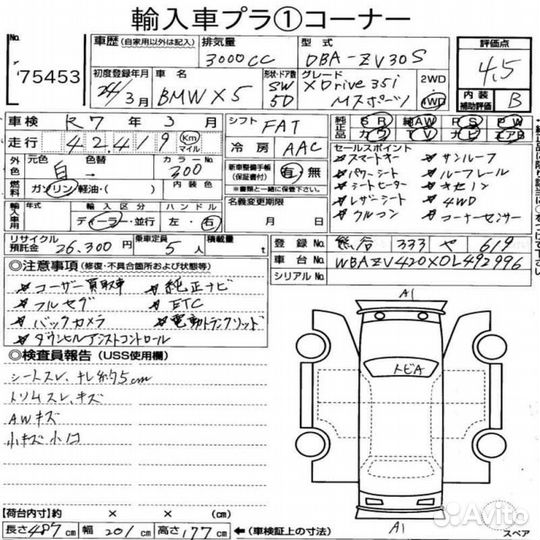 輸入車プラ①コーナー
No.
75453
車歴 (自家用以外は記入)
排気量
3000CC
型式
DBA-ZV30S
評価点
4.5
初度登録年月
24/3月
車名
BMW X5
形状・ドア数
SW
5D
グレード
XDrive 35i
Mスポーツ
2WD
4WD
内装
補助評価
B
車検
R7年3月
シフト
FAT
純正品
SR 純AW PS PW
カワ TV ナビ エアB
走行
42,419
Km
マイル
冷房
AAC
セールスポイント
スマートキー
サンルーフ
パワーシート
ルーフレール
シートヒーター
キセノン
レザーシート
4WD
クルコン
コーナーセンサー
外色
元色
白
色替
カラーNo.
300
新車整備手帳
(保証書付)
有・無
燃料
ガソリン・軽油・( )
内装色
※一緒にご提出ください。
名義変更期限
月 日
輸入車用
年式
輸入区分
ディーラー・並行
ハンドル
左・右
リサイクル
預託金
26,300円
乗車定員
5人
積載量
t
登録No.
熊谷 333 や 619
車台No.
WBAZV420X0L492996
シリアルNo.
◎注意事項 (修復・不具合箇所および状態等)
ユーザー買取車
純正ナビ
フルセグ
ETC
バックカメラ
電動トランクリッド
ダウンヒルアシストコントロール
◎検査員報告 (USS使用欄)
シートスレ、
トリムスレ、キズ
AWキズ
小キズ小凹
A1
トビA
A1
スペア
【荷台内寸】約 × × (cm)
長さ487cm 幅201cm 高さ177cm ◀(車検証上の寸法)
Avito